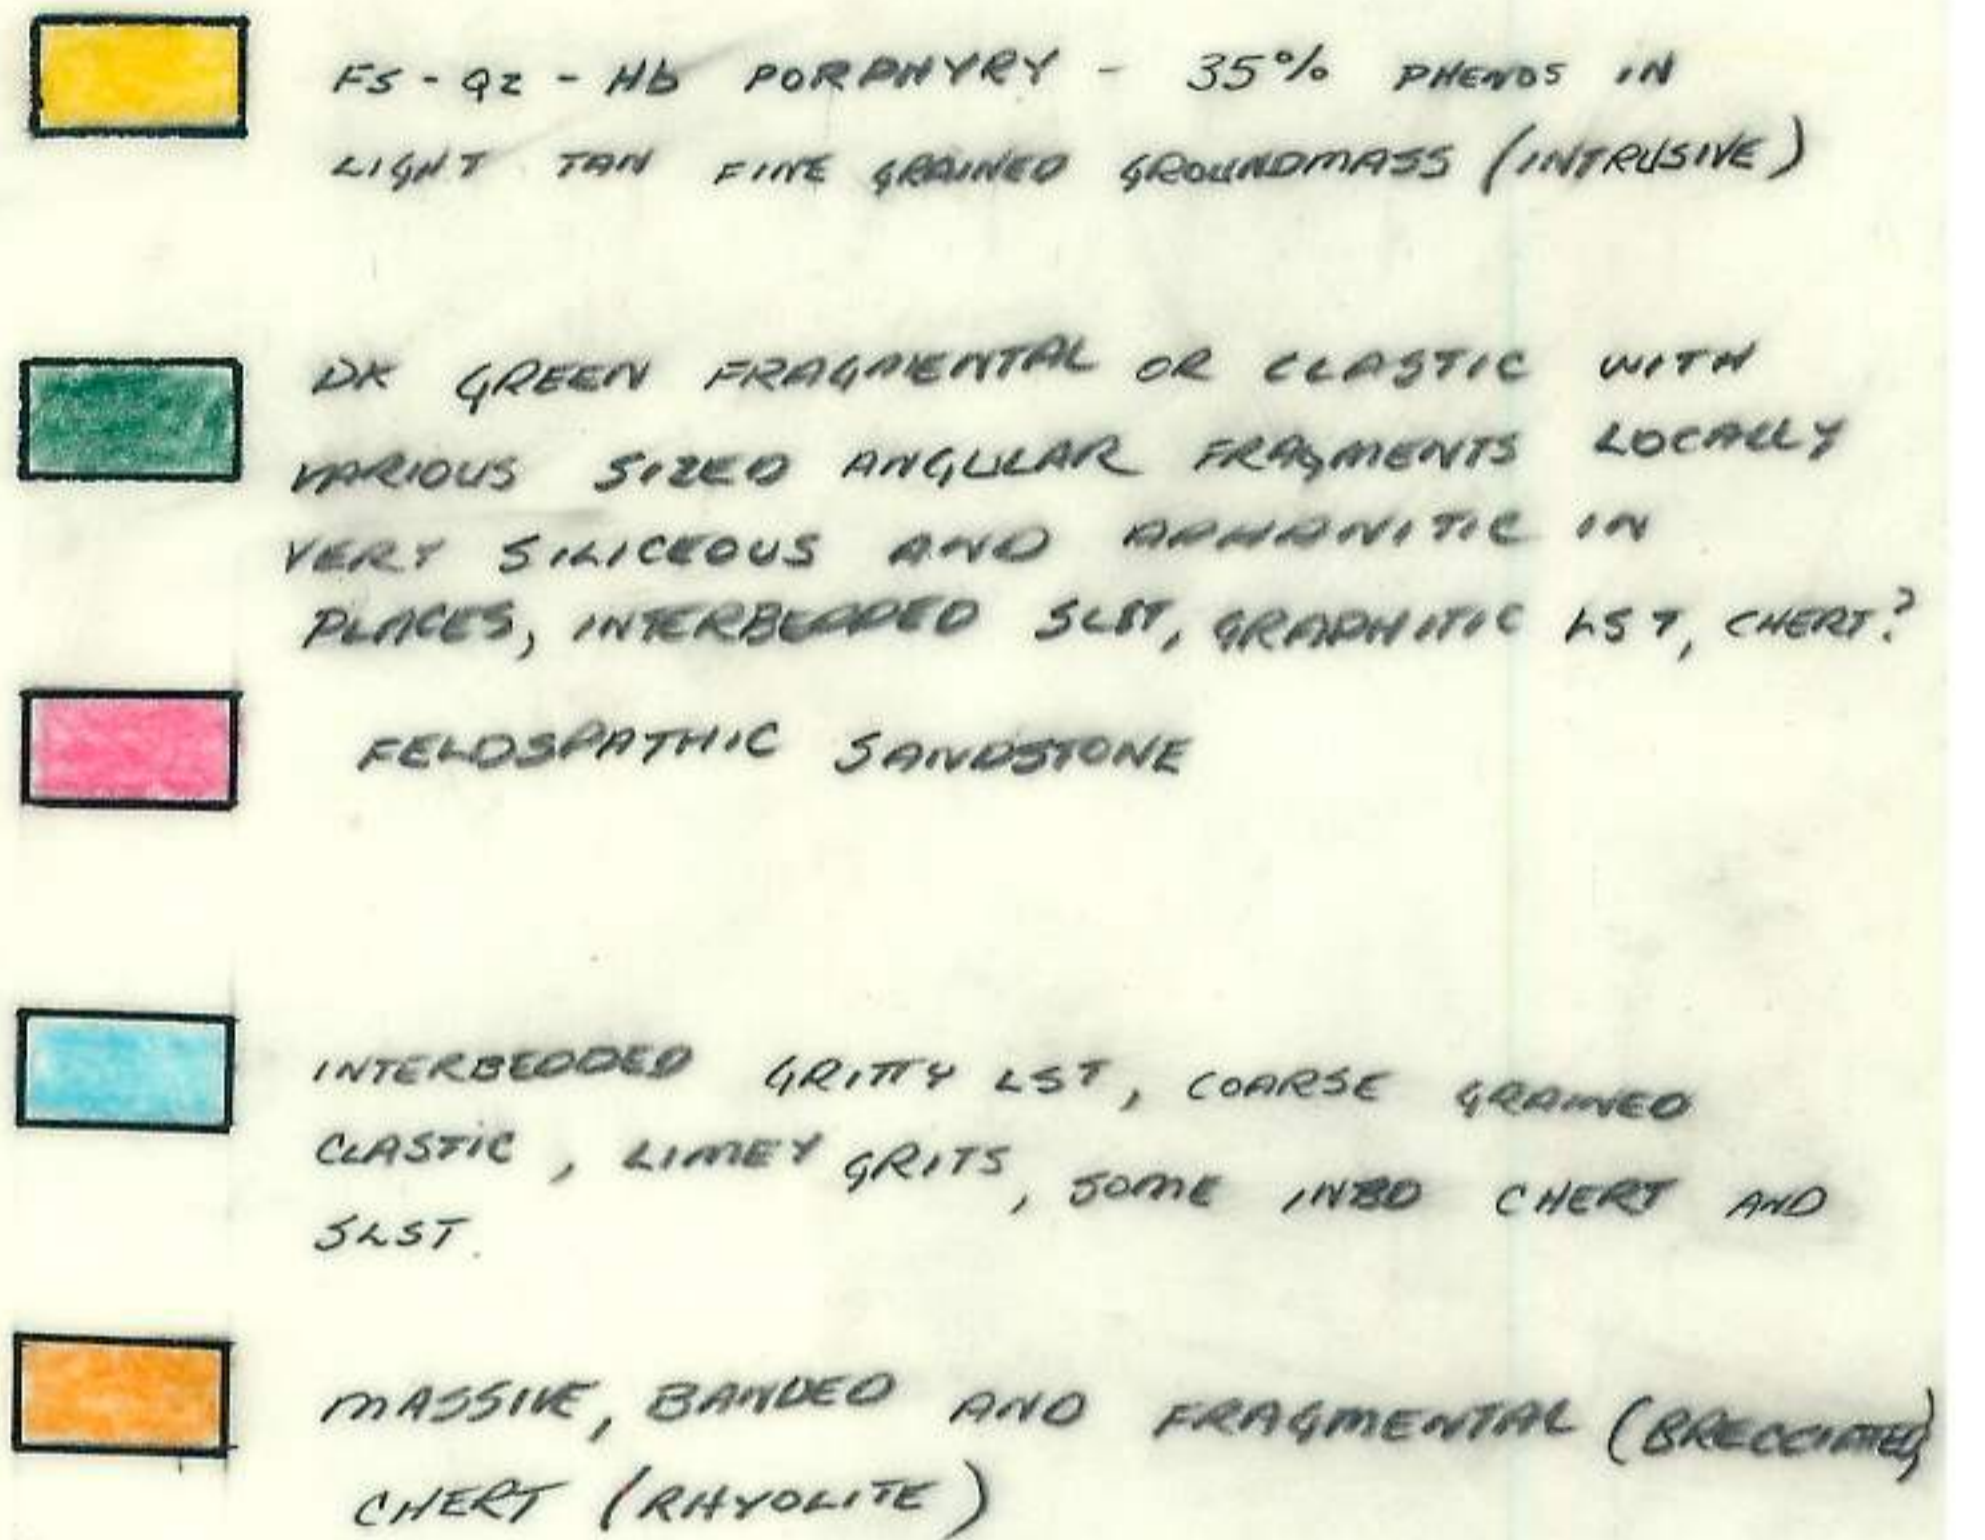 FS - QZ - Hb PORPHYRY - 35% PHENOS IN
LIGHT TAN FINE GRAINED GROUNDMASS (INTRUSIVE)
DK GREEN FRAGMENTAL OR CLASTIC WITH
VARIOUS SIZED ANGULAR FRAGMENTS LOCALLY
VERY SILICEOUS AND APHANITIC IN
PLACES, INTERBEDDED SLST, GRAPHITIC LST, CHERT?
FELDSPATHIC SANDSTONE
INTERBEDDED GRITTY LST, COARSE GRAINED
CLASTIC, LIMEY GRITS, SOME INBD CHERT AND
SLST.
MASSIVE, BANDED AND FRAGMENTAL (BRECCIATED)
CHERT (RHYOLITE)